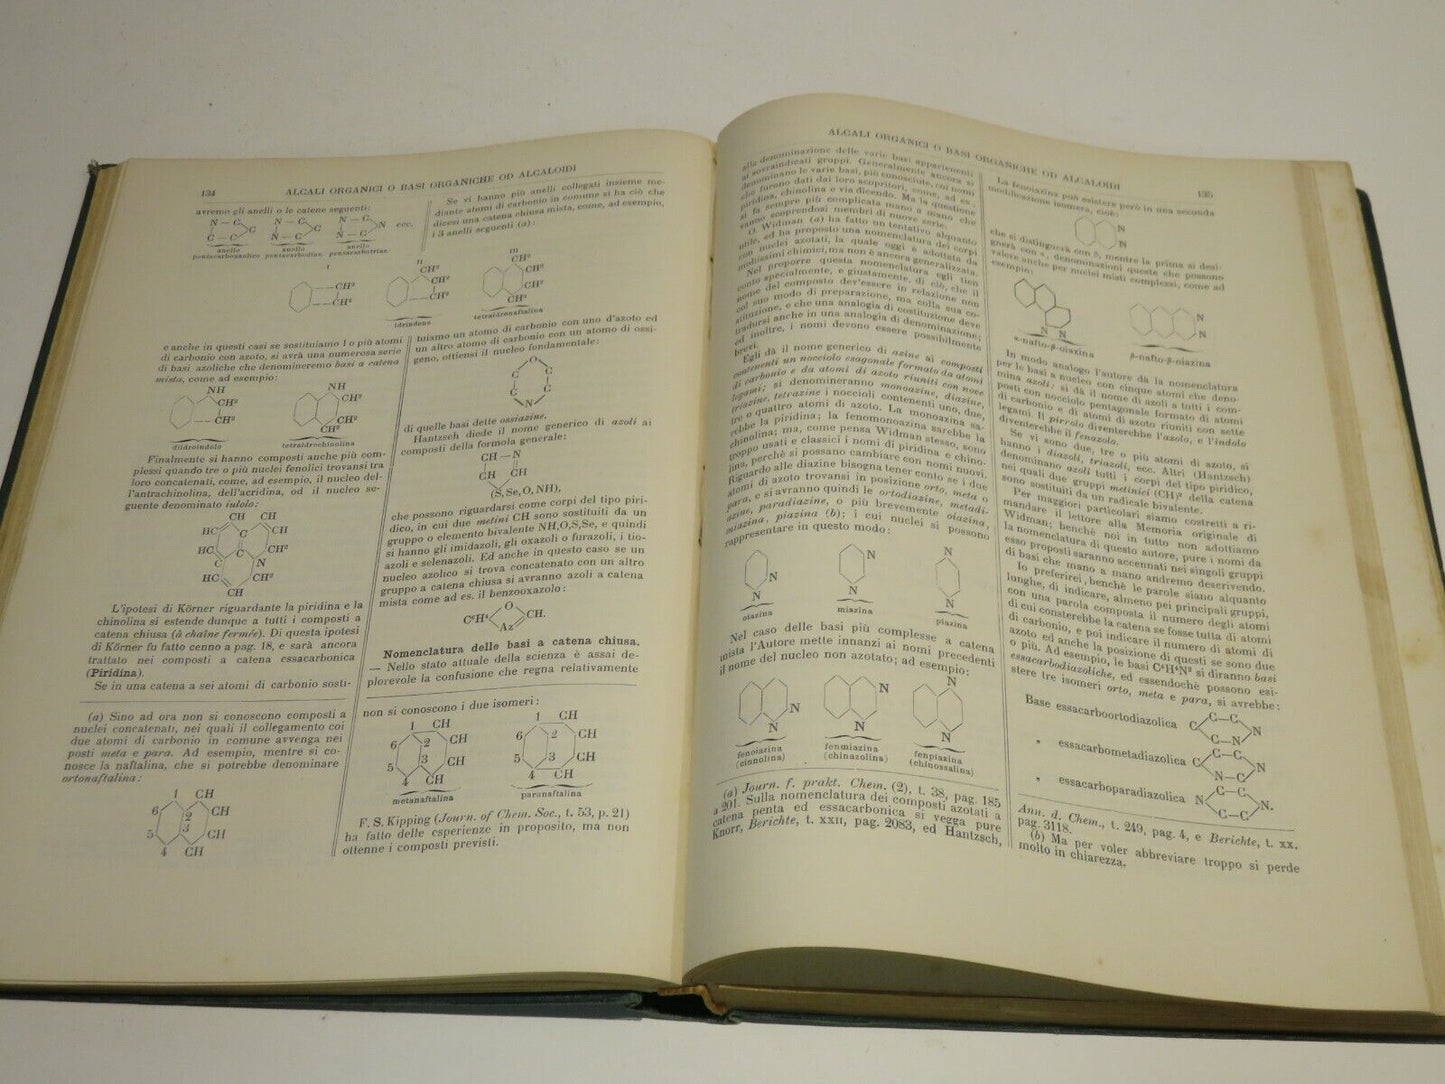 134 ALCALI ORGANICI O BASI ORGANICHE OD ALCALOIDI
avremo gli anelli o le catene seguenti:
N — C C
C — C
N — C C
N — C
N — C N
N — C
ecc.
anello anello anello
pentacarboazolico pentacarbodiaz. pentacarbotriaz.
Se vi hanno più anelli collegati insieme me-
diante atomi di carbonio in comune si ha ciò che
dicesi una catena chiusa mista, come, ad esempio,
i 3 anelli seguenti (a):
I
CH²
CH²
II
CH²
CH²
CH²
idrindene
III
CH²
CH²
CH²
CH²
tetraidronaftalina
e anche in questi casi se sostituiamo 1 o più atomi
di carbonio con azoto, si avrà una numerosa serie
di basi azoliche che denomineremo basi a catena
mista, come ad esempio:
NH
CH²
CH²
diidroindolo
NH
CH²
CH²
CH²
tetraidrochinolina
Finalmente si hanno composti anche più com-
plessi quando tre o più nuclei fenolici trovansi tra
loro concatenati, come, ad esempio, il nucleo del-
l'antrachinolina, dell'acridina, od il nucleo se-
guente denominato iulolo:
CH CH
HC C CH
HC C CH²
C N
HC CH²
CH
L'ipotesi di Körner riguardante la piridina e la
chinolina si estende dunque a tutti i composti a
catena chiusa (à chaîne fermée). Di questa ipotesi
di Körner fu fatto cenno a pag. 18, e sarà ancora
trattato nei composti a catena essacarbonica
(Piridina).
Se in una catena a sei atomi di carbonio sosti-
(a) Sino ad ora non si conoscono composti a
nuclei concatenati, nei quali il collegamento coi
due atomi di carbonio in comune avvenga nei
posti meta e para. Ad esempio, mentre si co-
nosce la naftalina, che si potrebbe denominare
ortonaftalina:
1 CH
6 2 CH
5 3 CH
4 CH
tuiamo un atomo di carbonio con uno d'azoto ed
un altro atomo di carbonio con un atomo di ossi-
geno, ottiensi il nucleo fondamentale:
O
C C
C C
N
di quelle basi dette ossiazine.
Hantzsch diede il nome generico di azoli ai
composti della formola generale:
CH — N
CH CH
(S, Se, O, NH),
che possono riguardarsi come corpi del tipo piri-
dico, in cui due metini CH sono sostituiti da un
gruppo o elemento bivalente NH,O,S,Se, e quindi
si hanno gli imidazoli, gli oxazoli o furazoli, i tio-
azoli e selenazoli. Ed anche in questo caso se un
nucleo azolico si trova concatenato con un altro
gruppo a catena chiusa si avranno azoli a catena
mista come ad es. il benzooxazolo:
C⁶H⁴ O CH.
Az
Nomenclatura delle basi a catena chiusa.
— Nello stato attuale della scienza è assai de-
plorevole la confusione che regna relativamente
non si conoscono i due isomeri:
1 CH
6 2 CH
5 3 CH
4 CH
metanaftalina
1 CH
6 2 CH
5 3 CH
4 CH
paranaftalina
F. S. Kipping (Journ. of Chem. Soc., t. 53, p. 21)
ha fatto delle esperienze in proposito, ma non
ottenne i composti previsti.
ALCALI ORGANICI O BASI ORGANICHE OD ALCALOIDI 135
alla denominazione delle varie basi appartenenti
ai sovraindicati gruppi. Generalmente ancora si
denominano le varie basi, più conosciute, coi nomi
che furono dati dai loro scopritori, come, ad es.,
piridina, chinolina e via dicendo. Ma la questione
si fa sempre più complicata mano a mano che
vanno scoprendosi membri di nuove serie.
O. Widman (a) ha fatto un tentativo alquanto
utile, ed ha proposto una nomenclatura dei corpi
con nuclei azotati, la quale oggi è adottata da
moltissimi chimici, ma non è ancora generalizzata.
Nel preporre questa nomenclatura egli tien
conto specialmente, e giustamente, di ciò, che il
nome del composto dev'essere in relazione non
col suo modo di preparazione, ma colla sua co-
stituzione, e che una analogia di costituzione deve
tradursi anche in una analogia di denominazione;
ed inoltre, i nomi devono essere possibilmente
brevi.
Egli dà il nome generico di asine ai composti
contenenti un nocciolo esagonale formato da atomi
di carbonio e da atomi di azoto riuniti con nove
legami; si denomineranno monoazine, diazine,
triazine, tetrazine i noccioli contenenti uno, due,
tre o quattro atomi di azoto. La monoazina sa-
rebbe la piridina; la fenomonoazina sarebbe la
chinolina; ma, come pensa Widman stesso, sono
troppo usati e classici i nomi di piridina e chino-
lina, perchè si possano cambiare con nomi nuovi.
Riguardo alle diazine bisogna tener conto se i due
atomi di azoto trovansi in posizione orto, meta o
para, e si avranno quindi le ortodiazine, metadi-
azine, paradiazine, o più brevemente oiazina,
miazina, piazina (b); i cui nuclei si possono
rappresentare in questo modo:
N
N
oiazina
N
N
miazina
N
N
piazina
Nel caso delle basi più complesse a catena
mista l'Autore mette innanzi ai nomi precedenti
il nome del nucleo non azotato; ad esempio:
N
N
fenoiazina
(cinnolina)
N
N
fenmiazina
(chinazolina)
N
N
fenpiazina
(chinossalina)
(a) Journ. f. prakt. Chem. (2), t. 38, pag. 185
a 201. Sulla nomenclatura dei composti azotati a
catena penta ed essacarbonica si vegga pure
Knorr, Berichte, t. XXII, pag. 2083, ed Hantzsch,
La fenoiazina può esistere però in una seconda
modificazione isomera, cioè:
N
N
che si distinguerà con β, mentre la prima si desi-
gnerà con α, denominazioni queste che possono
valere anche per nuclei misti complessi, come ad
esempio:
N N
α-nafto-β-oiazina
N
N
β-nafto-β-oiazina
In modo analogo l'autore dà la nomenclatura
per le basi a nucleo con cinque atomi che deno-
mina azoli: si dà il nome di azoli a tutti i com-
posti con nocciolo pentagonale formato di atomi
di carbonio e di atomi di azoto riuniti con sette
legami. Il pirrolo diventerebbe l'azolo, e l'indolo
diventerebbe il fenazolo.
Se vi sono due, tre o più atomi di azoto, si
hanno i diazoli, triazoli, ecc. Altri (Hantzsch)
denominano azoli tutti i corpi del tipo piridico,
nei quali due gruppi metinici (CH)² della catena
sono sostituiti da un radicale bivalente.
Per maggiori particolari siamo costretti a ri-
mandare il lettore alla Memoria originale di
Widman; benchè noi in tutto non adottiamo
la nomenclatura di questo autore, pure i nomi da
esso proposti saranno accennati nei singoli gruppi
di basi che mano a mano andremo descrivendo.
Io preferirei, benchè le parole siano alquanto
lunghe, di indicare, almeno pei principali gruppi,
con una parola composta il numero degli atomi
di cui consterebbe la catena se fosse tutta di atomi
di carbonio, e poi indicare il numero di atomi di
azoto ed anche la posizione di questi se sono due
o più. Ad esempio, le basi C⁴H⁴N² si diranno basi
essacarbodiazoliche, ed essendochè possono esi-
stere tre isomeri orto, meta e para, si avrebbe:
Base essacarboortodiazolica C C—C N
C—N
" essacarbometadiazolica C C—C N
N—C
" essacarboparadiazolica N C—C N.
C—C
Ann. d. Chem., t. 249, pag. 4, e Berichte, t. XX,
pag. 3118.
(b) Ma per voler abbreviare troppo si perde
molto in chiarezza.